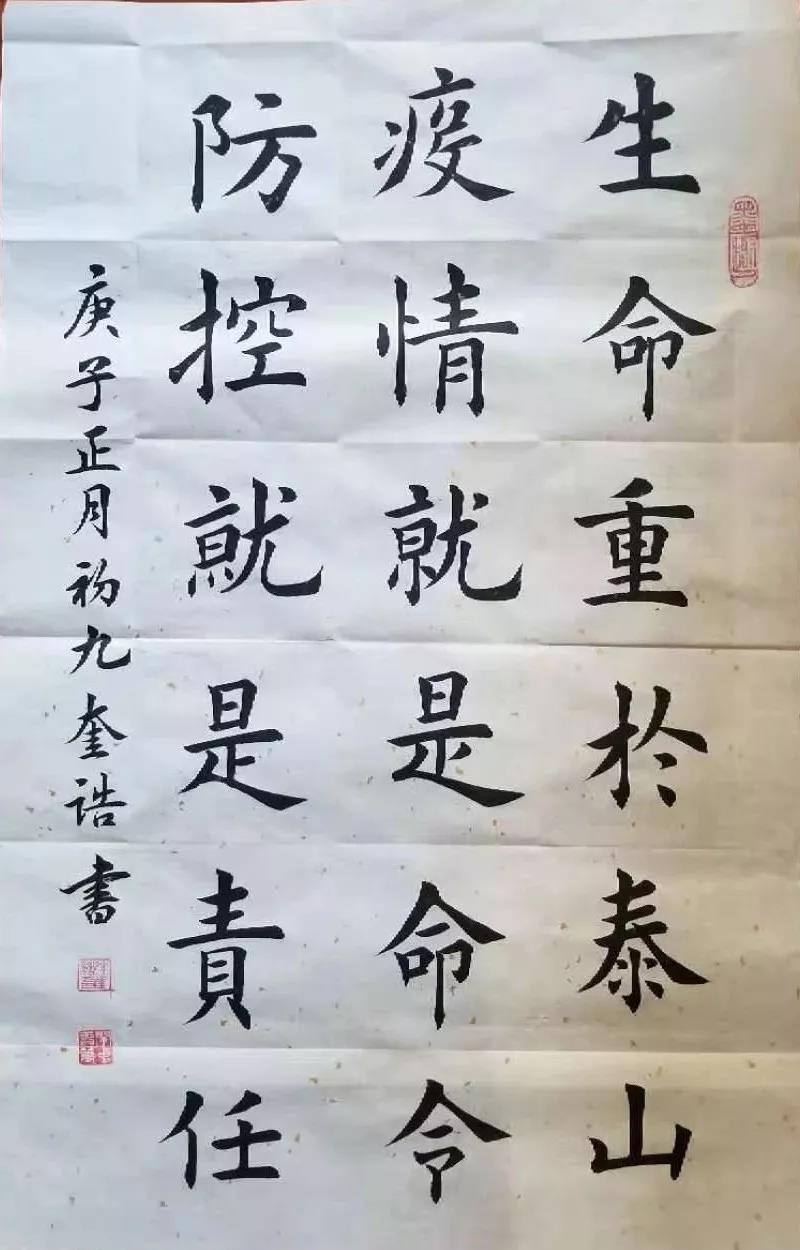 生命重於泰山
疫情就是命令
防控就是責任
庚子正月初九奎诰書